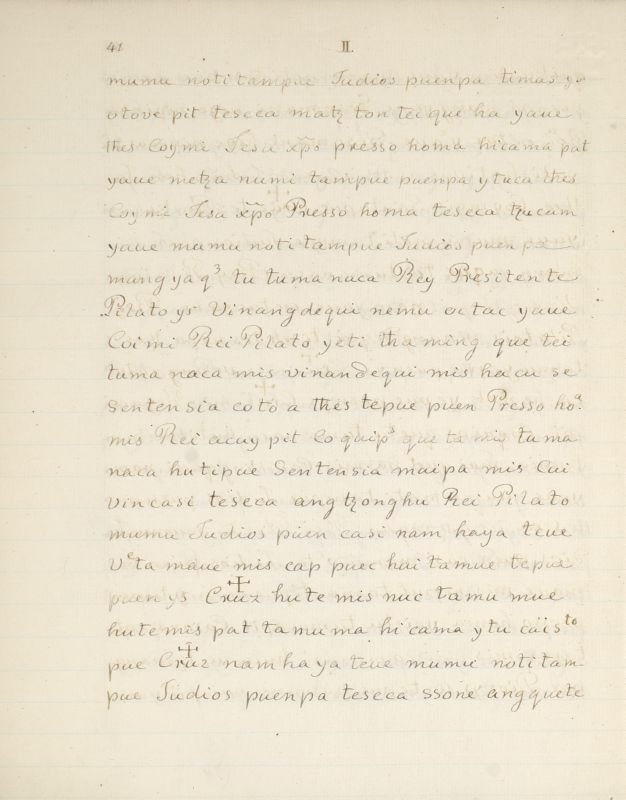 41 II.
mumu noti tampue Judios puenpa timas ys
otove pit teseca matz ton tei que ha yaue
thes Coymi Jesu xp̃o presso homa hicama pat
yaue metza numi tampue puenpa ytuca thes
Coymi Jesu xp̃o Presso homa teseca tzucam
yaue mumu noti tampue Judios puen pa
mang ya q³ tu tuma naca Rey Presitente
Pilato ys Vinangdequi nemu octac yaue
Coimi Rei Pilato yeti tha ming que tei
tuma naca mis vinandequi mis hacu se
Sentensia coto a thes tepue puen Presso hoª.
mis Rei acuy pit Co quips que ta mis tuma
naca hutipue Sentensia maipa mis Cui
vin casi teseca angtzonghu Rei Pilato
mumu Judios puen casi nam haya teue
Vᵉta maue mis cap puec hai tamue tepue
puen ys Cruz hute mis nuc tamu mue
hute mis pat tamu ma hicama y tu cuisᵗᵒ
pue Cruz nam haya teue mumu noti tam
pue Judios puenpa teseca ssone angquete